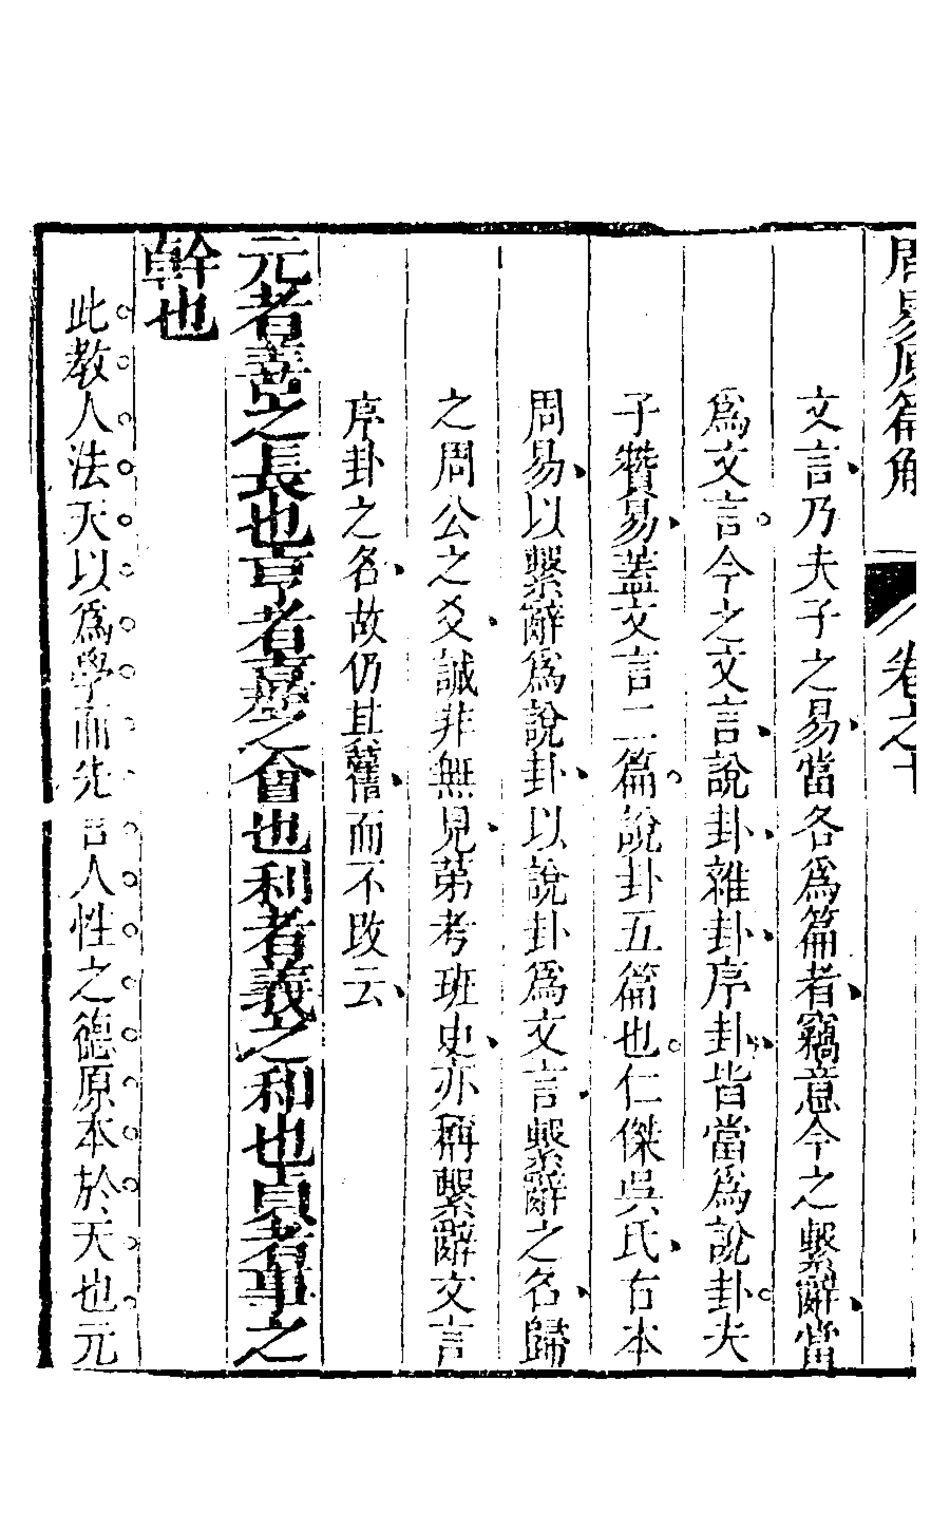 周易原篇解 卷之十
文言乃夫子之易當各爲篇者竊意今之繫辭當
爲文言今之文言說卦雜卦序卦皆當爲說卦夫
子贊易蓋文言二篇說卦五篇也仁傑吳氏右本
周易以繫辭爲說卦以說卦爲文言繫辭之名歸
之周公之爻誠非無見第考班史亦稱繫辭文言
序卦之名故仍其舊而不改云
元者善之長也亨者嘉之會也利者義之和也貞者事之
幹也
此教人法天以爲學而先言人性之德原本於天也元